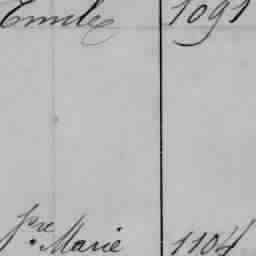 Emile 1091
pre Marie 1104